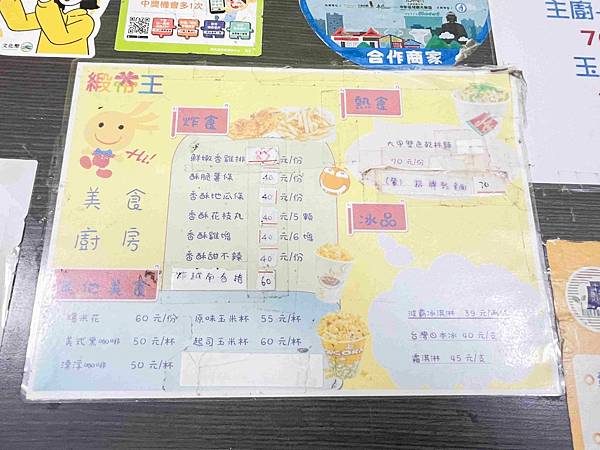 中獎機會多1次
文化幣
合作商家
主廚
緞帶王
Hi!
美食
廚房
炸食
鮮嫩香雞排 元/份
酥脆薯條 40 元/份
香酥地瓜條 40 元/份
香酥花枝丸 40 元/5顆
香酥雞塊 40 元/6塊
香酥甜不辣 40 元/份
炸越南春捲 60
熱食
大甲雙色乾拌麵
70 元/份
乾麵 70
冰品
元/兩球
台灣日本冰 40元/支
霜淇淋 45元/支
其他美食
爆米花 60元/份
美式黑咖啡 50元/杯
香濃咖啡 50元/杯
原味玉米杯 55元/杯
起司玉米杯 60元/杯